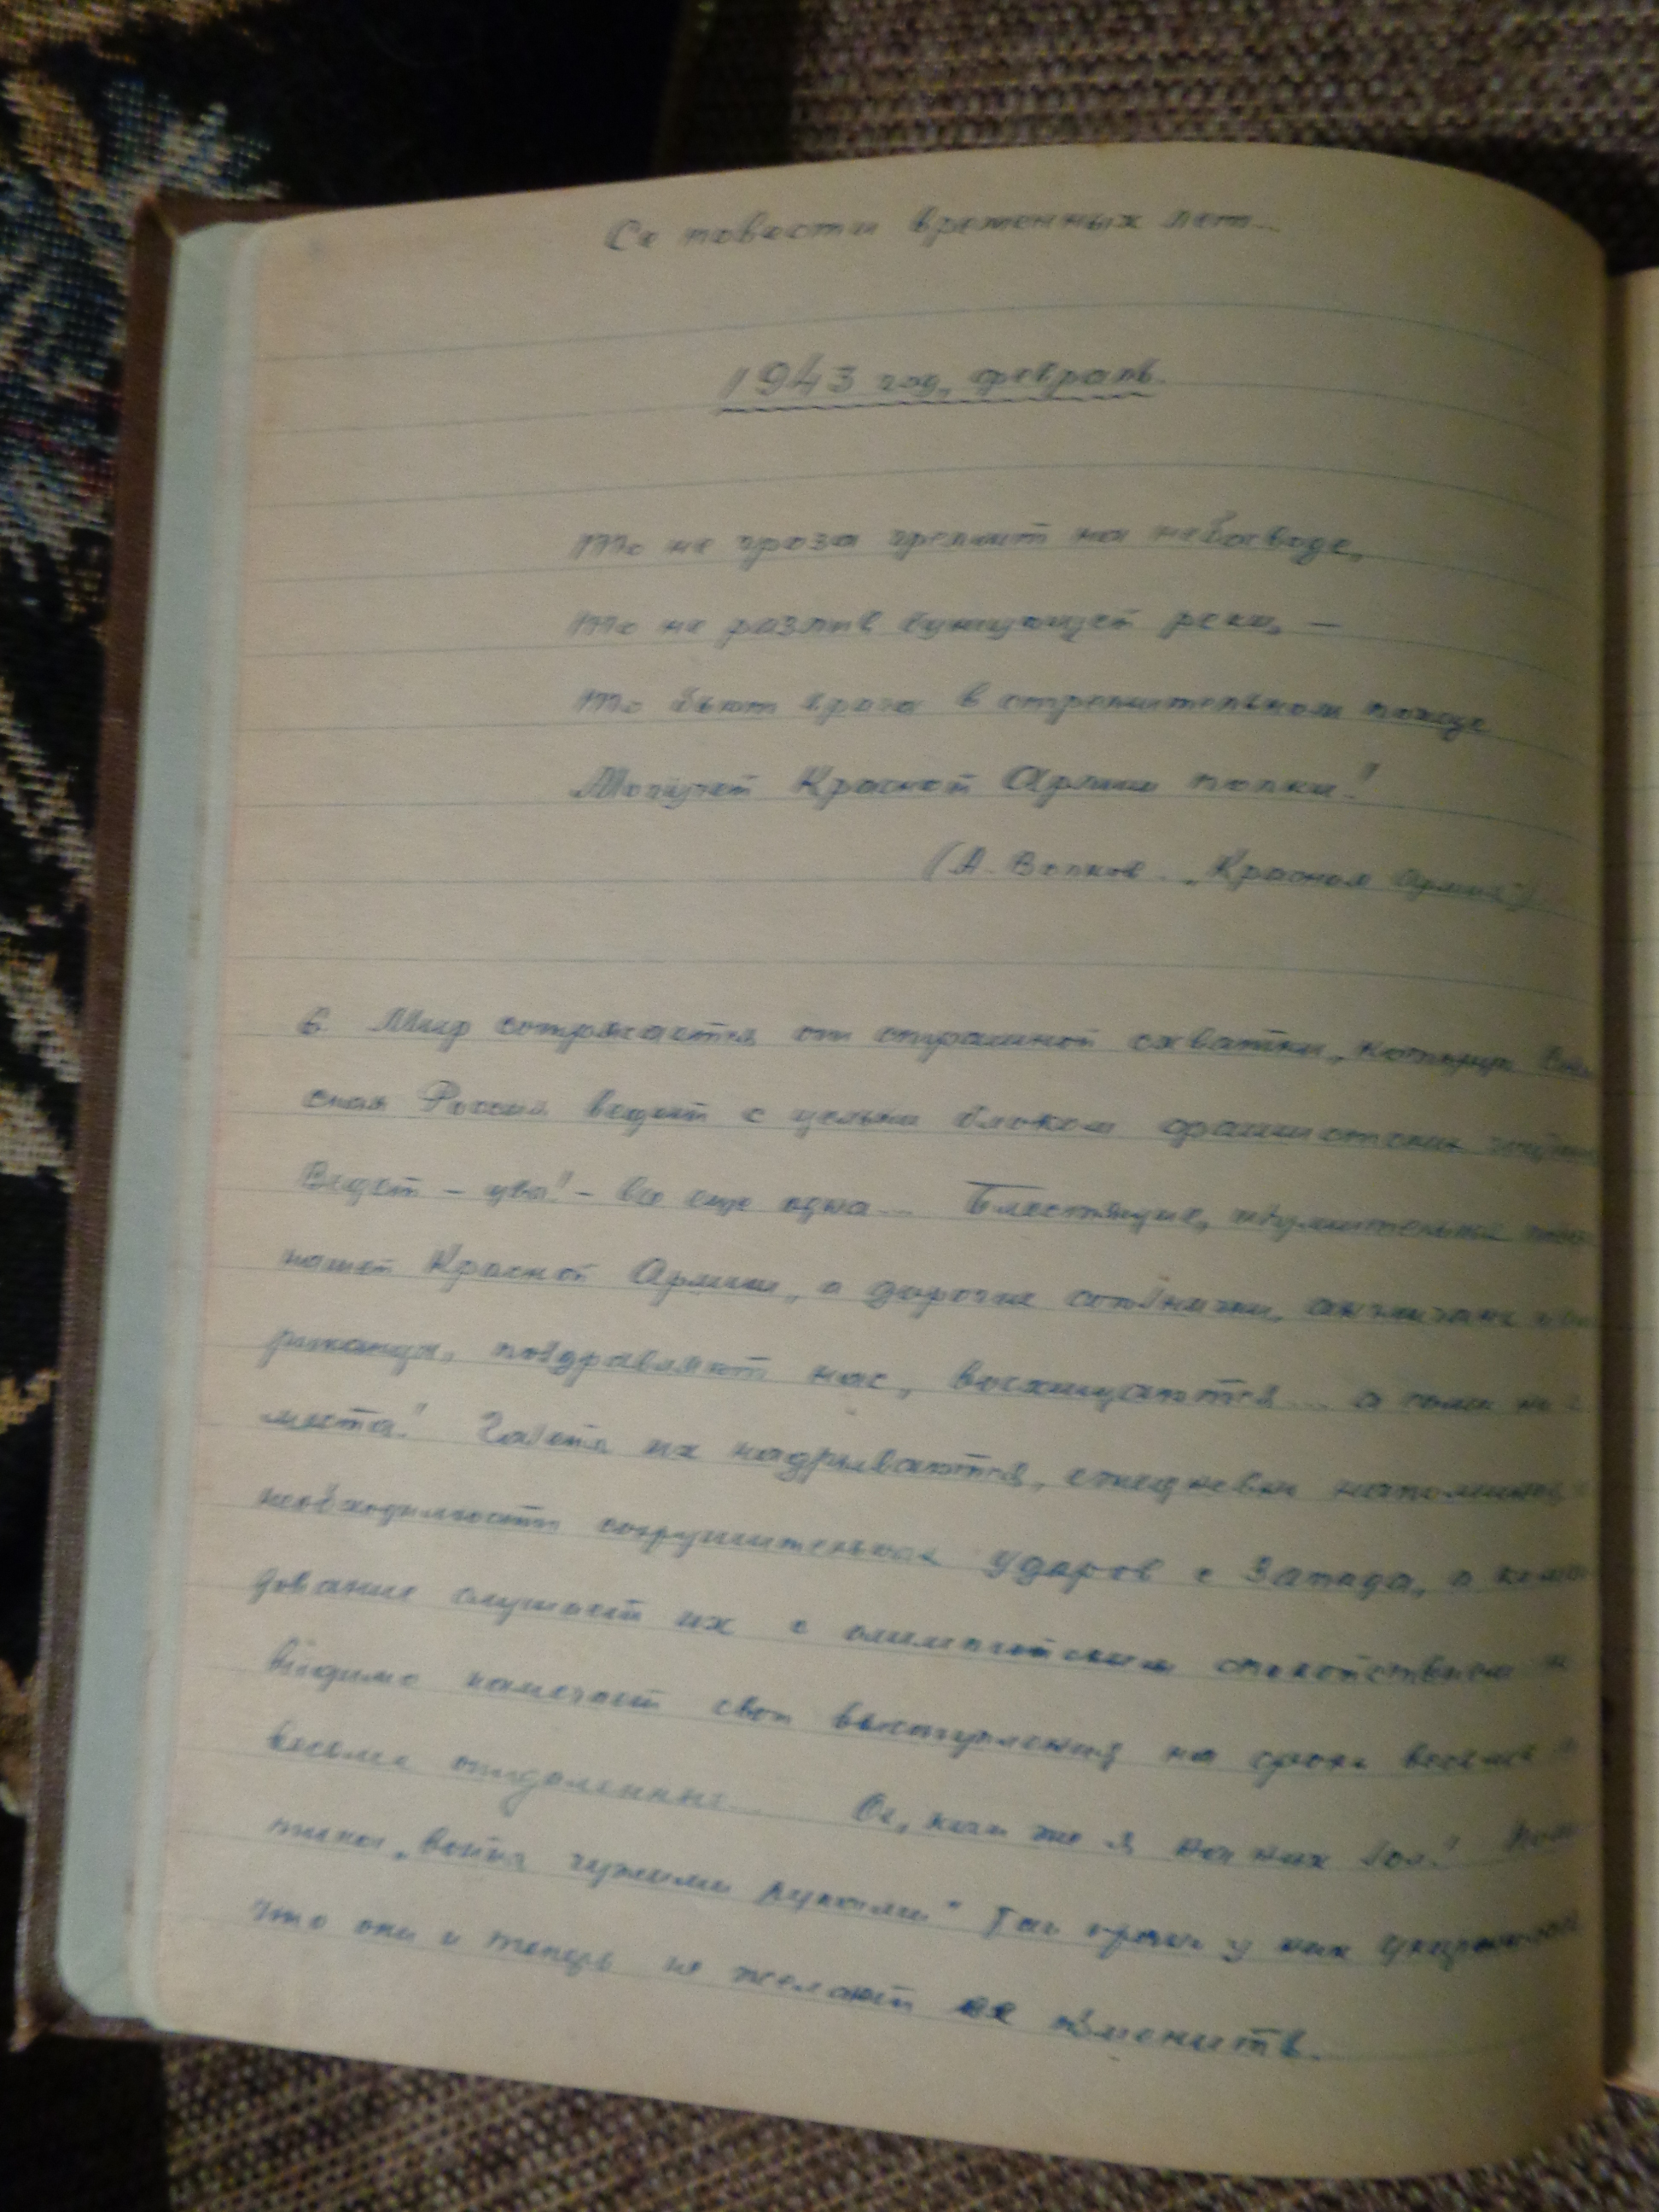 Се повести временных лет...
1943 год, февраль.
То не гроза гремит на небосводе,
То не разлив бушующей реки, —
То бьют врага в стремительном походе
Могучей Красной Армии полки!
(А. Волков. „Красная Армия")
6. Мир сотрясается от страшной схватки, которую
ская Россия ведет с целым блоком фашистских
Ведет – увы! – все еще одна... Блестящие, изумительные
нашей Красной Армии, а дорогие союзники, англичане и
риканцы, поздравляют нас, восхищаются... а сами ни с
места! Газеты их надрываются, ежедневно напоминая о
необходимости сокрушительных ударов с Запада, а
дование слушает их с олимпийским спокойствием и
видимо намечает свои выступления на сроки весьма и
весьма отдаленные... Ох, как же я на них зол!
тика „войны чужими руками" так прочно у них укоренилась
что они и теперь не желают ее изменить.